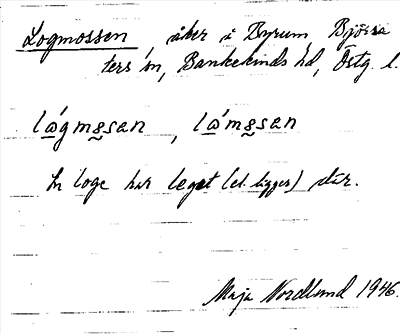 Logmossen åker i Byrum, Björsä
ters sn, Bankekinds hd, Östg. l.
lǻgmo̤san, lǻmo̤san
En loge har legat (el. ligger) där.
Maja Nordlund 1946.